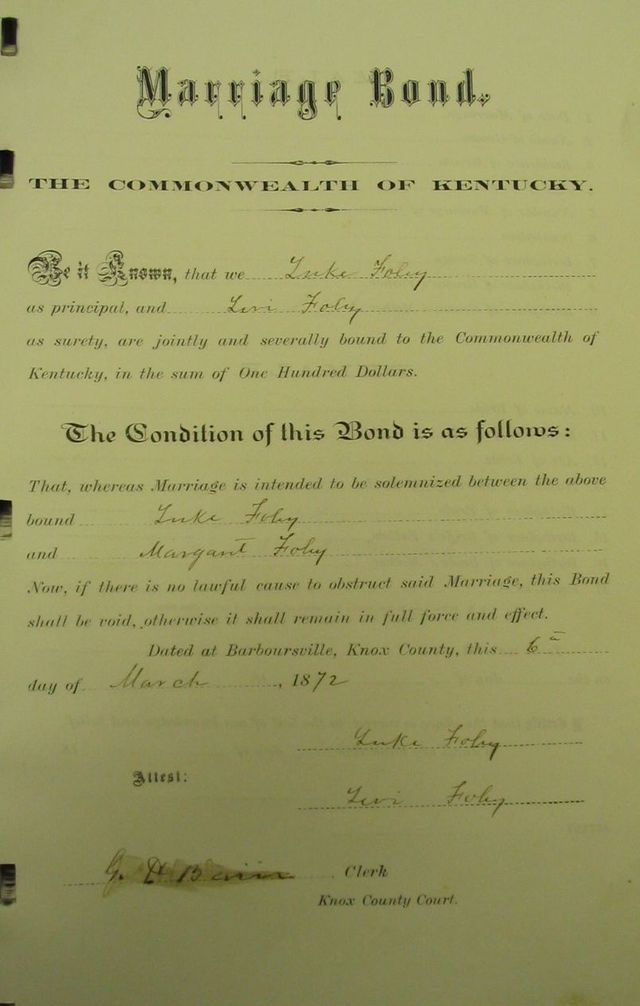 Marriage Bond.
THE COMMONWEALTH OF KENTUCKY.
Be it Known, that we Luke Foley
as principal, and Levi Foley
as surety, are jointly and severally bound to the Commonwealth of
Kentucky, in the sum of One Hundred Dollars.
The Condition of this Bond is as follows:
That, whereas Marriage is intended to be solemnized between the above
bound Luke Foley
and Margaret Foley
Now, if there is no lawful cause to obstruct said Marriage, this Bond
shall be void, otherwise it shall remain in full force and effect.
Dated at Barboursville, Knox County, this 6
day of March, 1872
Luke Foley
Attest:
Levi Foley
G. H. Clerk
Knox County Court.